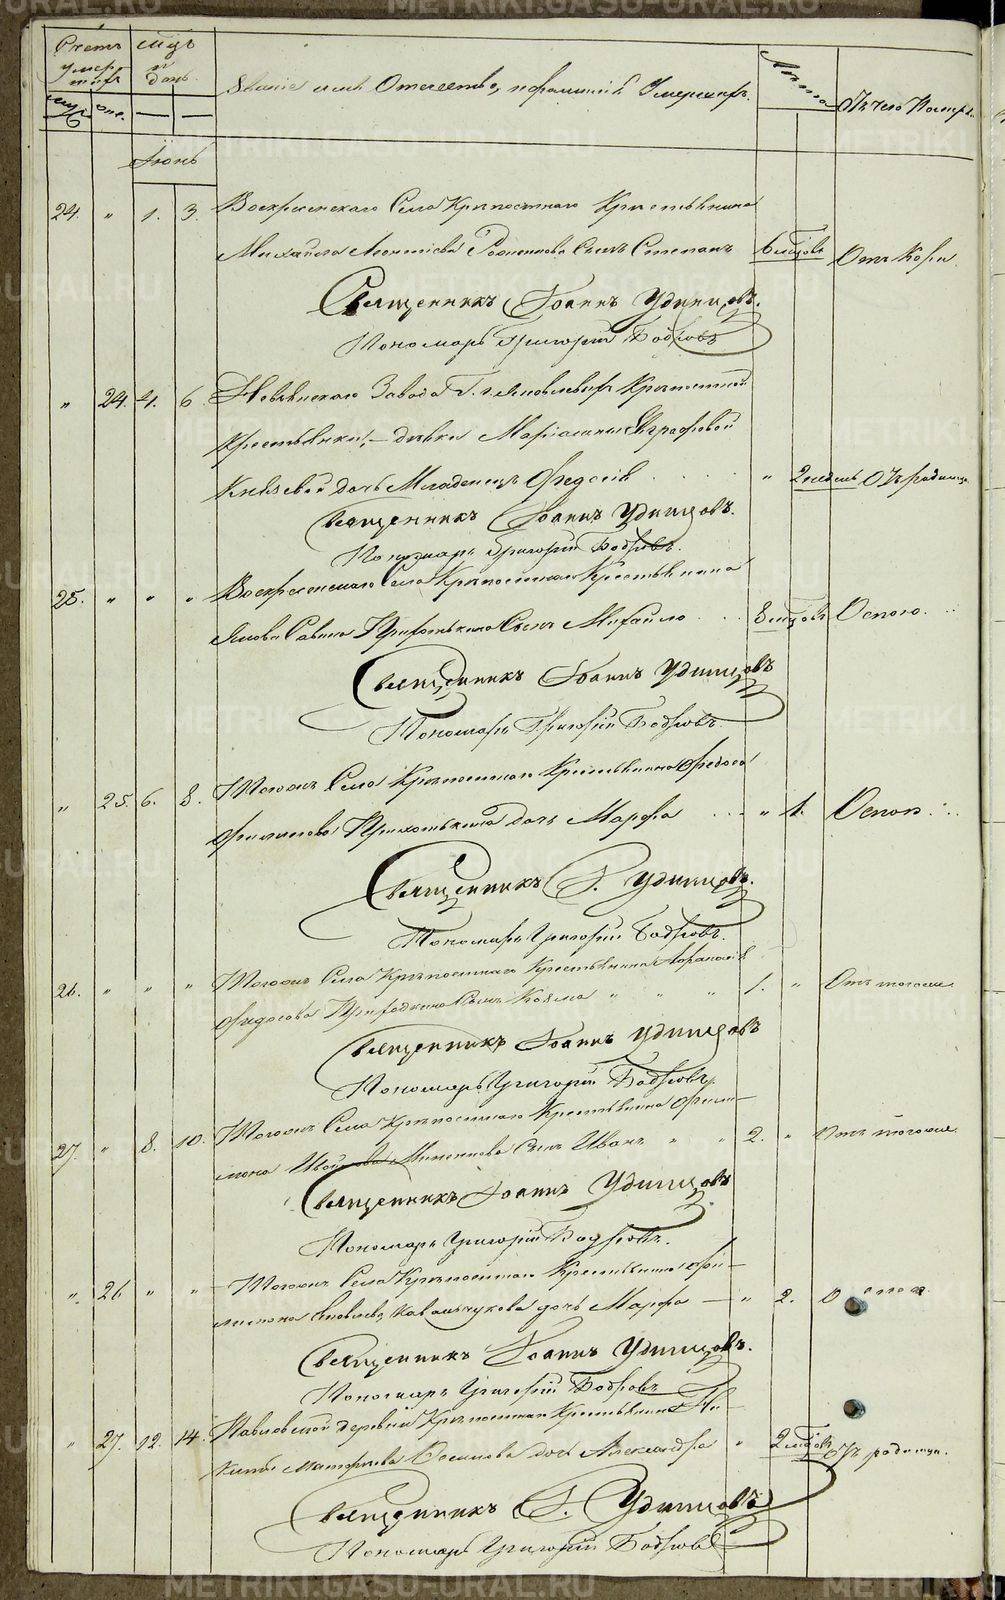 Счетъ умер- шихъ
мѣц и день
Званіе имя Отечество, и фамилія Умершихъ.
Лѣта
Отъ чего Померъ.
муж. жен.
Іюнь
24. " 1. 3. Воскресенскаго Села Крѣпостнаго Крестьянина
Михайла Леонтіева сынъ Степанъ 6 мѣцовъ Отъ Кори.
Священникъ Іоаннъ Удинцовъ.
Пономарь Григорій Бобровъ
" 24. 4. 6. Невьянскаго Завода Г. г. Яковлевыхъ Крѣпостной
Крестьянки, — дѣвки Маріанны Евграфовой
Князевой дочь Младенецъ Федосія " 2 недель Отъ родимца
Священникъ Іоаннъ Удинцовъ.
Пономарь Григорій Бобровъ.
25. " " " Воскресенскаго Села Крѣпостнаго Крестьянина
Якова Савина Сынъ Михайло 8 мѣцовъ Оспою.
Священникъ Іоаннъ Удинцовъ
Пономарь Григорій Бобровъ.
" 25. 6. 8. Тогожъ Села Крѣпостнаго Крестьянина Федоса
Филипова дочь Марфа " 1. Оспою
Священникъ І. Удинцовъ.
Пономарь Григорій Бобровъ.
26. " " " Тогожъ Села Крѣпостнаго Крестьянина Афанасія
Федосова Сынъ Козма " " " 1. " Отъ тогоже
Священникъ Іоаннъ Удинцовъ
Пономарь Григорій Бобровъ.
27. " 8. 10. Тогожъ Села Крѣпостнаго Крестьянина Фили-
мона Сынъ Иванъ " " 2. " Отъ тогоже.
Священникъ Іоаннъ Удинцовъ
Пономарь Григорій Бобровъ.
" 26 " " Тогожъ Села Крѣпостнаго Крестьянина Фи-
лимона Яковлева дочь Марфа — " 2.
Священникъ Іоаннъ Удинцовъ.
Пономарь Григорій Бобровъ
" 27. 12. 14. Павловской деревни Крѣпостнаго Крестьянина Ни-
киты дочь Александра " 2 мѣцовъ Отъ родимца.
Священникъ І. Удинцовъ
Пономарь Григорій Бобровъ
METRIKI.GASO-URAL.RU